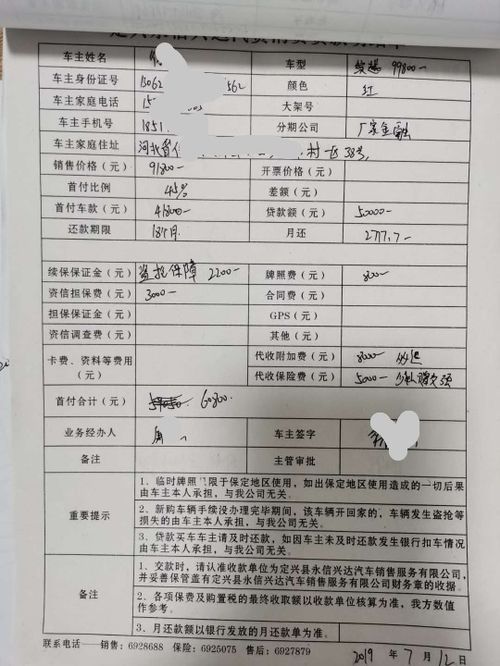 车主姓名 车型 99800-
车主身份证号 15062 562 颜色 红
车主家庭电话 15 大架号
车主手机号 1851 分期公司 厂家金融
车主家庭住址 河北省 村一区38号
销售价格(元) 91800- 开票价格(元)
首付比例 45% 差额(元)
首付车款(元) 41800- 贷款额(元) 50000-
还款期限 18个月 月还 2777.7-
续保保证金(元) 盗抢保障 2200- 牌照费(元) 800-
资信担保费(元) 3000- 合同费(元)
担保保证金(元) GPS(元)
资信调查费(元) 其他(元)
卡费、资料等费用(元) 代收附加费(元) 8000
代收保险费(元) 5000-
首付合计(元) 60800.
业务经办人 车主签字
备注 主管审批
重要提示
1、临时牌照只限于保定地区使用,如出保定地区使用造成的一切后果
由车主本人承担,与我公司无关。
2、新购车辆手续没办理完毕期间,该车辆开回家的,车辆发生盗抢等
损失的由车主本人承担,与我公司无关。
3、贷款买车车主请及时还款,如因车主未及时还款发生银行扣车情况
由车主本人承担,与我公司无关。
备注
1、交款时,请认准收款单位为定兴县永信兴达汽车销售服务有限公司,
并妥善保管盖有定兴县永信兴达汽车销售服务有限公司财务章的收据。
2、各项保费及购置税的最终收取额以收款单位核算为准,我方数值
作参考。
3、月还款额以银行发放的月还款单为准。
联系电话——销售:6928688 保险:6925075 售后:6927879
2019 年 7 月 12 日